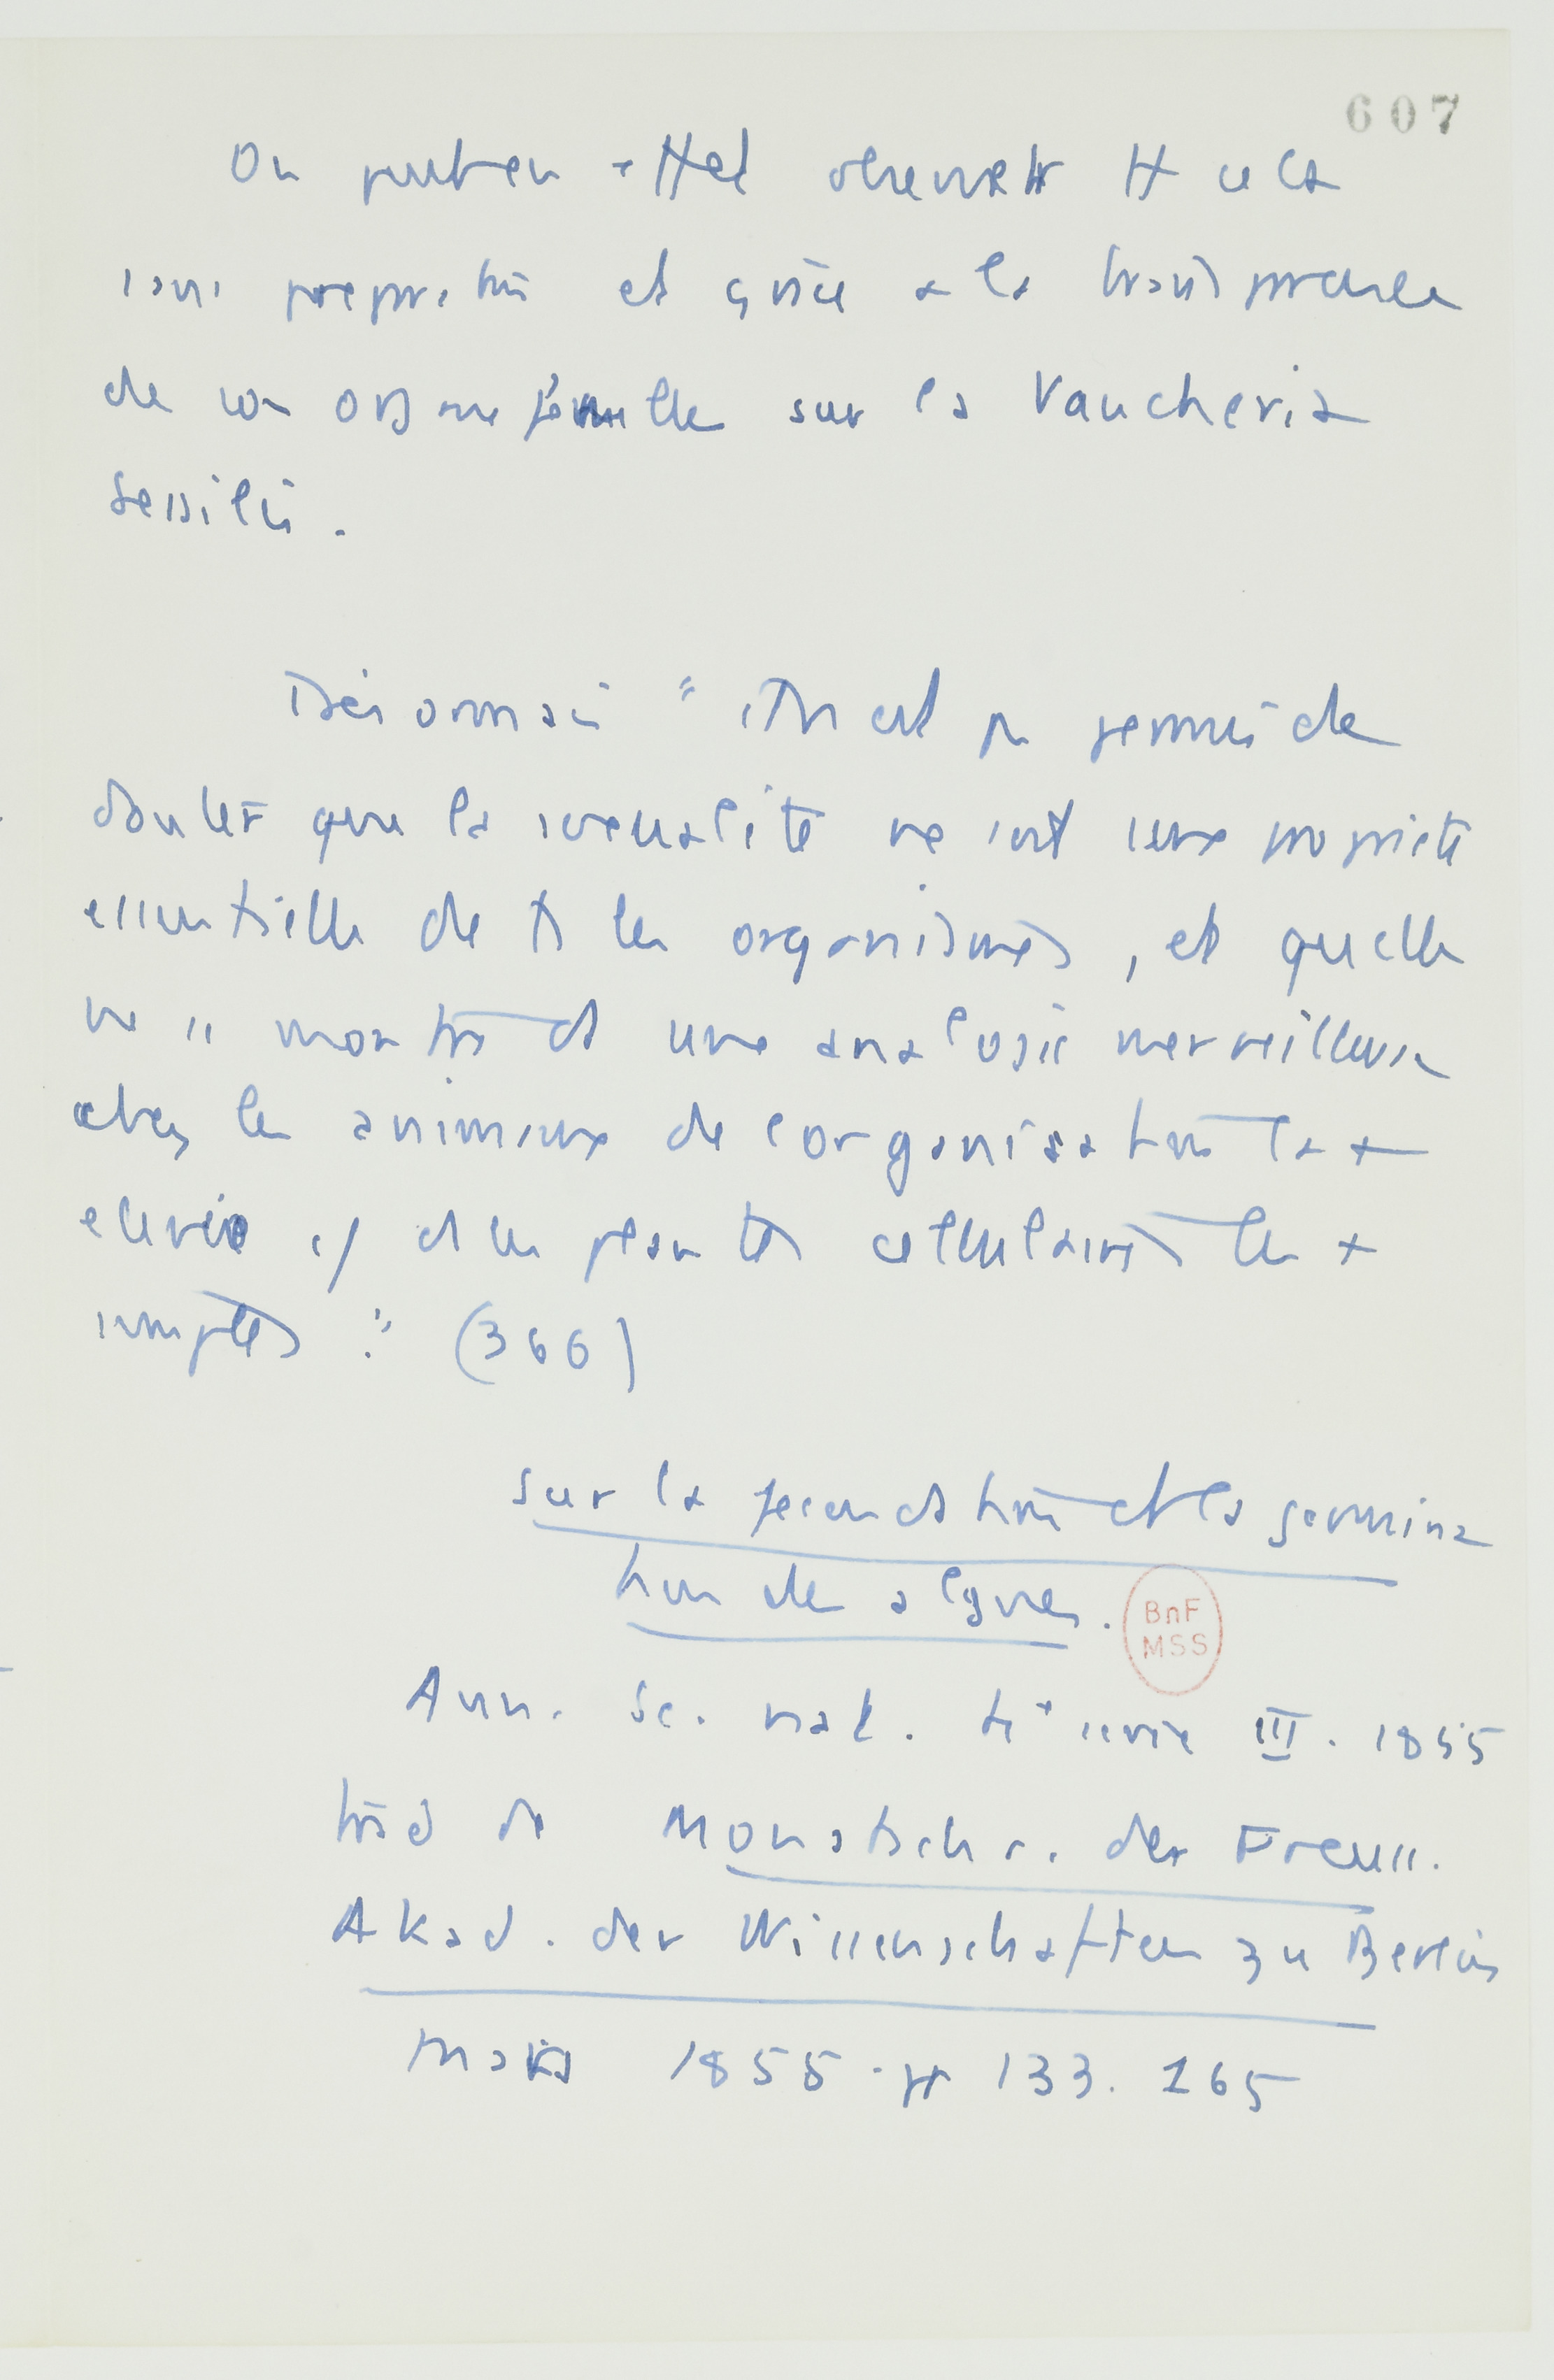 607
On peut en effet observer tt cela
sans preparation et grâce a la transparence
de son organe femelle sur la Vaucheria
sessilis.
Désormais " il n'est pas permis de
douter que la sexualité ne soit une propriété
essentielle de ts les organismes, et qu'elle
ne se montre et une analogie merveilleuse
chez les animaux de l'organisation la +
elevée et les plantes cellulaires les +
simples." (366)
Sur la fécondation et la germina
tion des algues.
BnF
MSS
Ann. Sc. nat. 4° serie III. 1855
trad de Monatschr. der Preuss.
Akad. der Wissenschaften zu Berlin
Mars 1855. pp 133. 165